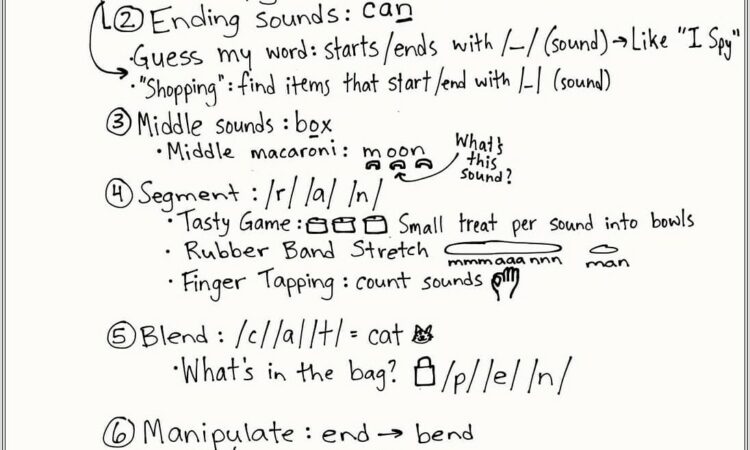 ② Ending sounds: can
• Guess my word: starts/ends with /_/ (sound) → Like "I Spy"
• "Shopping": find items that start/end with /_/ (sound)
③ Middle sounds: box
• Middle macaroni: moon
What's
this
sound?
④ Segment: /r/ /a/ /n/
• Tasty Game: Small treat per sound into bowls
• Rubber Band Stretch
mmmaaannn man
• Finger Tapping: count sounds
⑤ Blend: /c/ /a/ /t/ = cat
• What's in the bag? /p/ /e/ /n/
⑥ Manipulate: end → bend